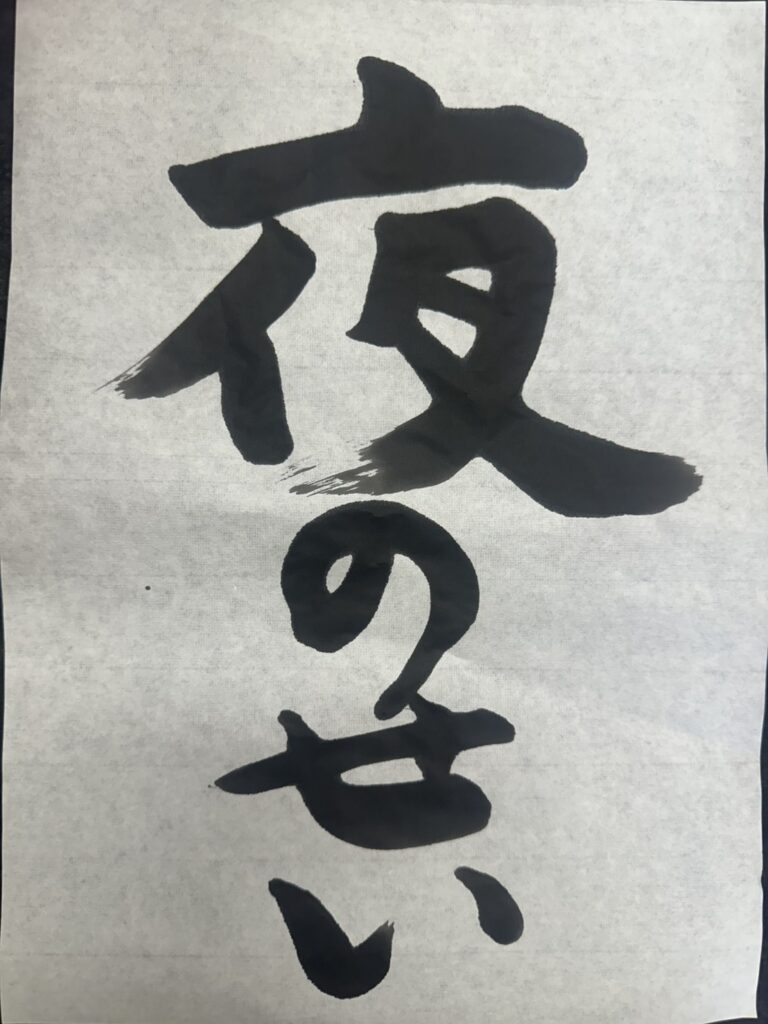 夜のせい